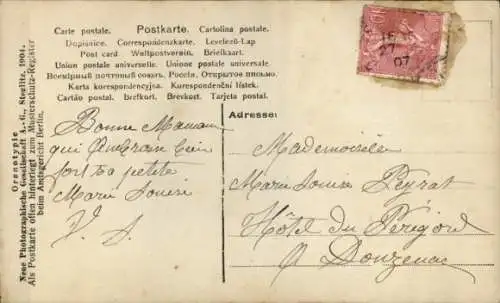 Carte postale. Postkarte. Cartolina postale.
Dopisnice. Correspondenzkarte. Levelező-Lap
Post card. Weltpostverein. Briefkaart.
Union postale universelle. Unione postale universale.
Всемірный почтовый союзъ. Россія. Открытое письмо.
Karta korespondencyjsa. Korespondenční listek.
Cartão postal. Brefkort. Brevkort. Tarjeta postal.
Orthotypie
Neue Photographische Gesellschaft A.-G., Steglitz. 1904.
Als Postkarte offen hinterlegt zum Musterschutz-Register
beim Amtsgericht Berlin.
Bonne Maman
qui
fort ta petite
Marie Louise
Adresse:
Mademoiselle
Marie Louise Peyrat
Hôtel du Périgord
a Donzenac
27
07